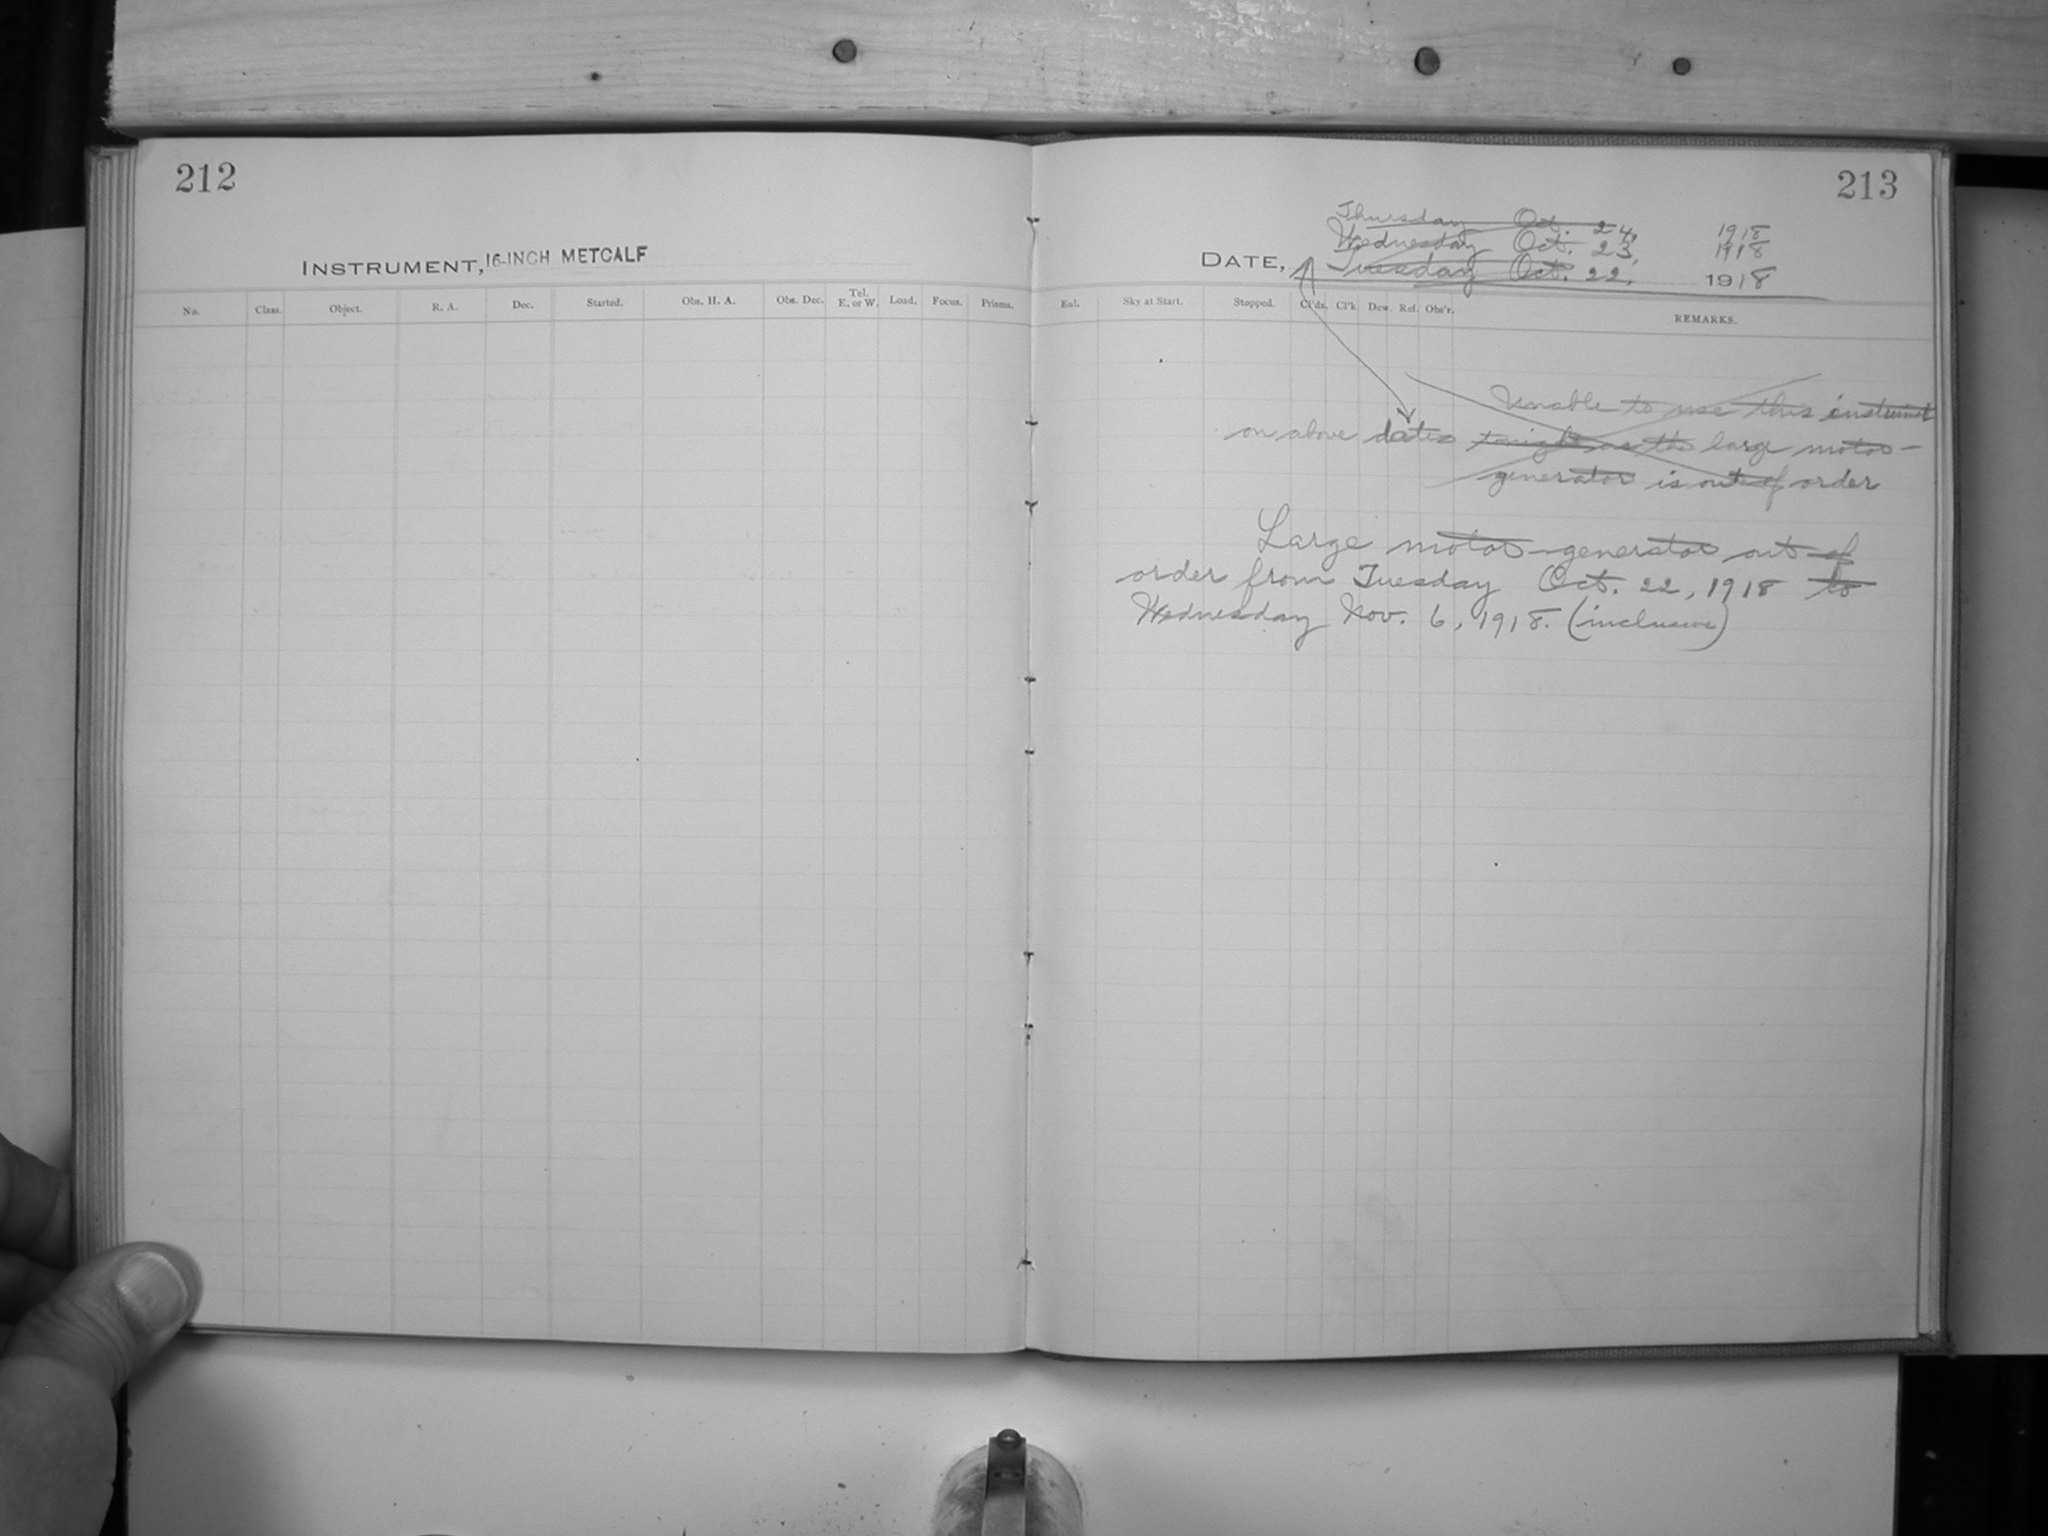 212
213
Thursday Oct. 24, 1918
Wednesday Oct. 23, 1918
INSTRUMENT, 16-INCH METCALF
DATE, Tuesday Oct. 22, 1918
No. Class. Object. R. A. Dec. Started. Obs. H. A. Obs. Dec. Tel. E. or W. Load. Focus. Prisms.
Eal. Sky at Start. Stopped. Cl'ds. Cl'k. Dew. Ref. Obs'r. REMARKS.
Unable to use this instrument
on above dates tonight as the large motor-
generator is out of order
Large motor-generator out of
order from Tuesday Oct. 22, 1918 to
Wednesday Nov. 6, 1918. (inclusive)